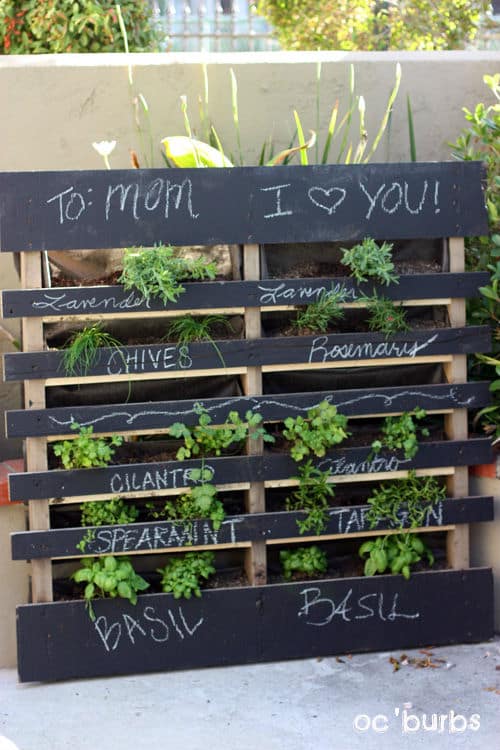 To: Mom I ♡ You!
Lavender Lavender
CHIVES Rosemary
CILANTRO Cilantro
SPEARMINT TARRAGON
BASIL BASIL
oc'burbs